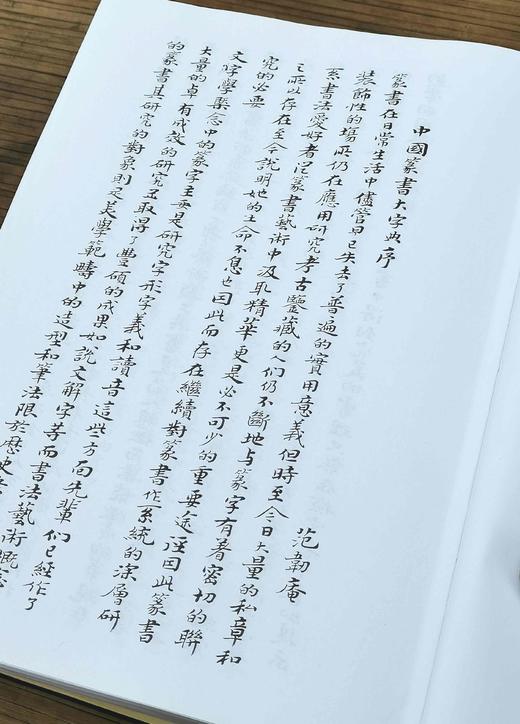 中國篆書大字典序
范韌庵
篆書在日常生活中儘管早已失去了普遍的實用意義但時至今日大量的私章和
裝飾性的場所仍在應用研究考古鑒藏的人们仍不斷地与篆字有著密切的聯
系書法愛好者從篆書藝術中汲取精華更是必不可少的重要途徑因此篆書
之所以存在至今說明她的生命不息也因此而存在繼續對篆書作系統的深層研
究的必要
文字學槩念中的篆字主要是研究字形字義和讀音這些方面先輩们已經作了
大量的卓有成效的研究並取得了豐碩的成果如說文解字等而書法藝術概念
的篆書其研究的對象則是美學範疇中的造型和筆法限於歷史